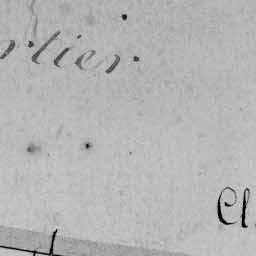 rtier
Cl